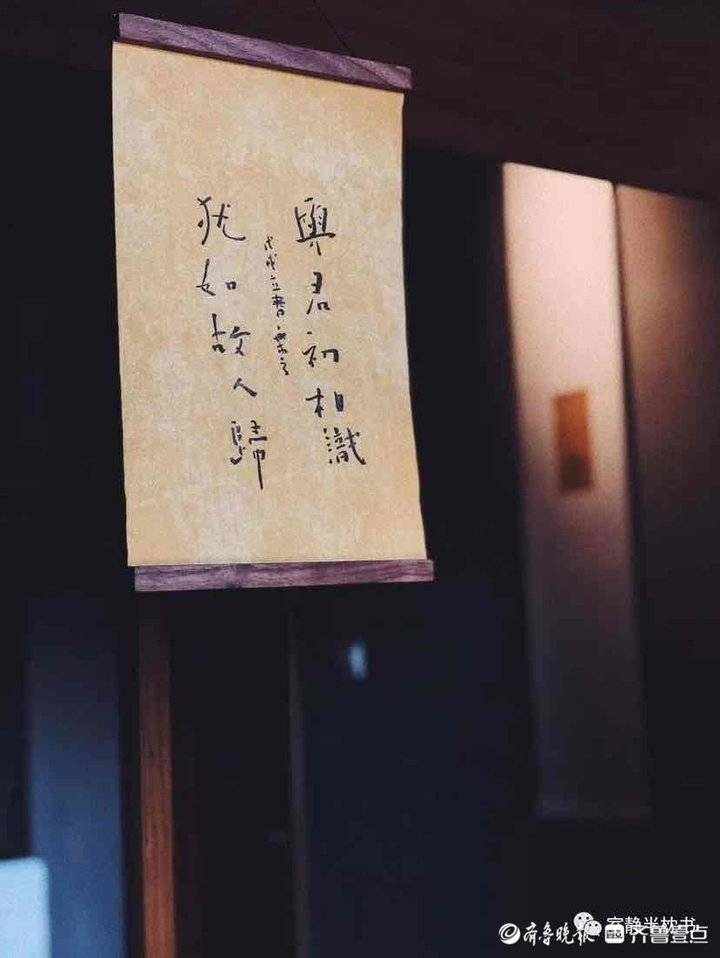 與君初相識
戊戌立春
犹如故人歸
室静半枕书
齐鲁晚报 齐鲁壹点